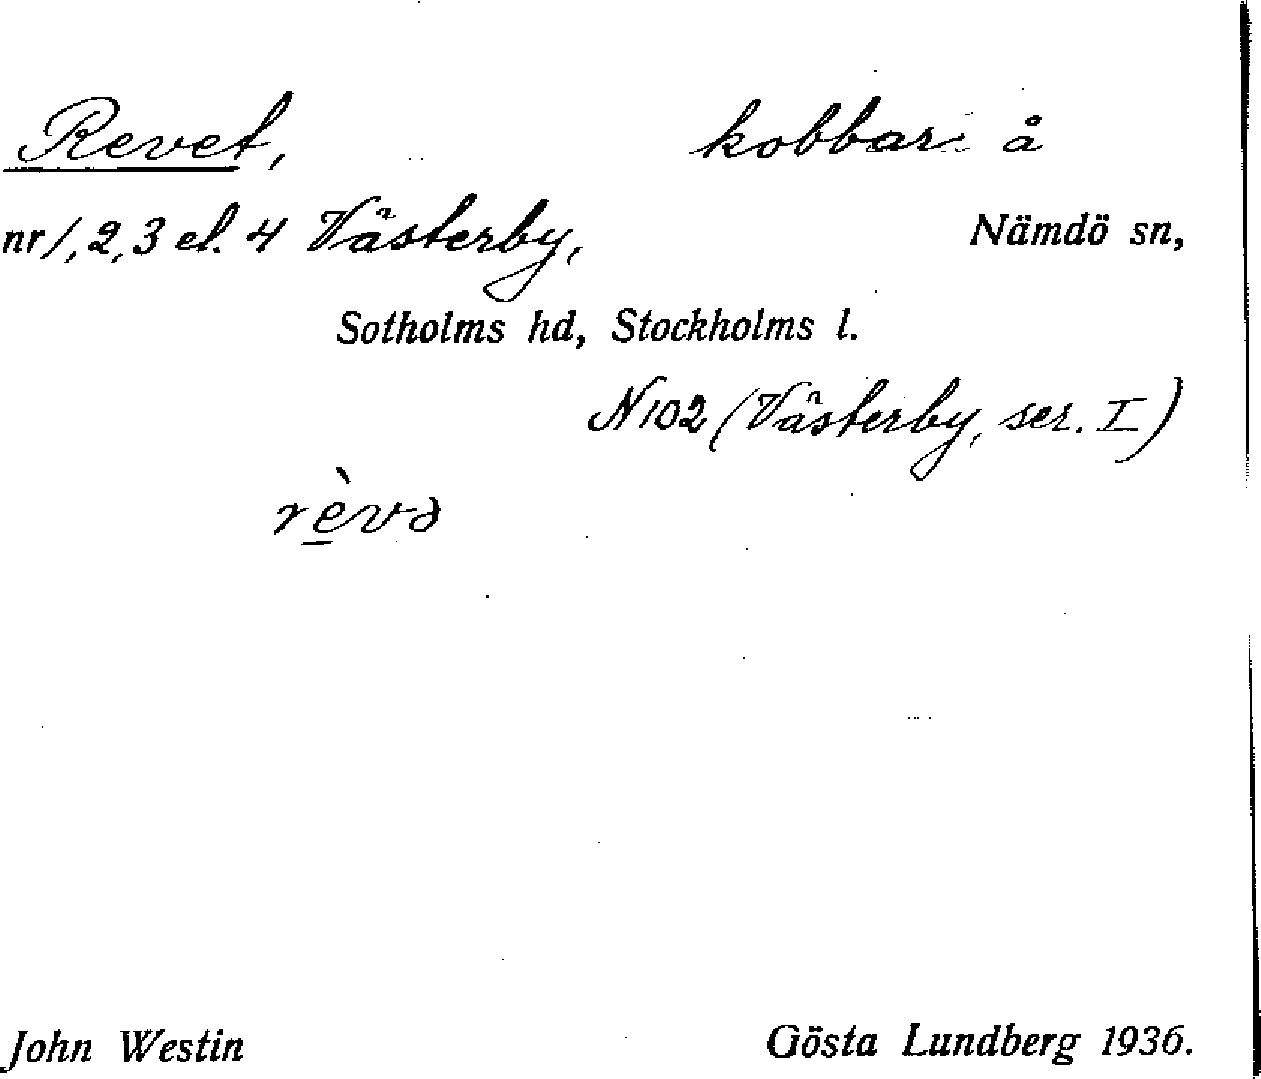 Revet, kobbar å
nr 1, 2, 3 el. 4 Västerby, Nämdö sn,
Sotholms hd, Stockholms l.
N 102 (Västerby, ser. I)
rèvə
John Westin Gösta Lundberg 1936.